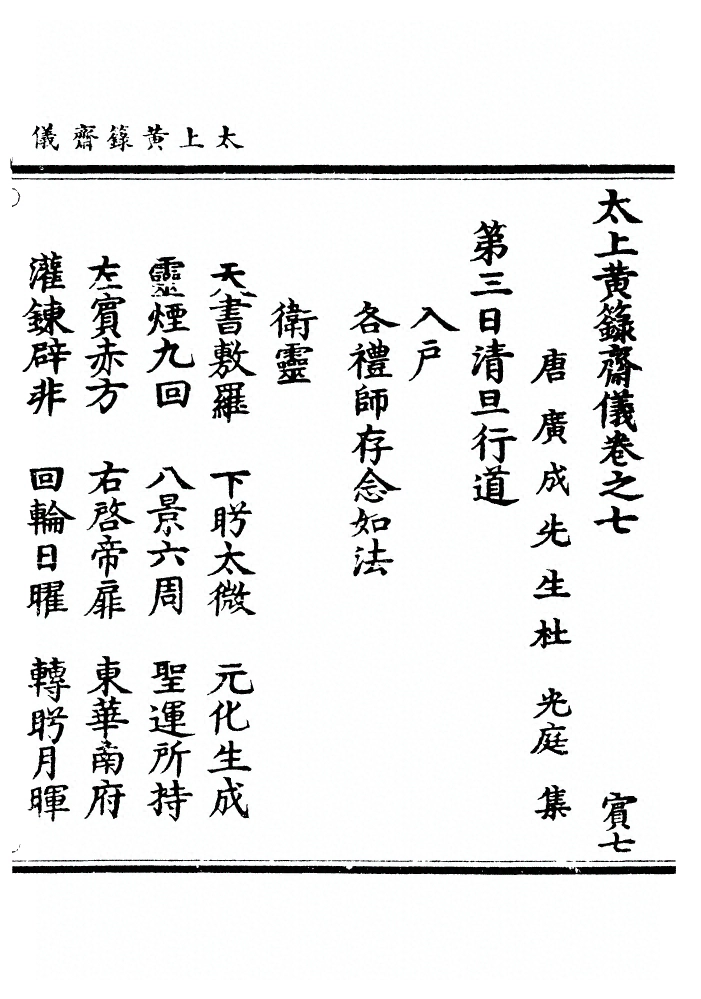 太上黃籙齋儀
太上黃籙齋儀卷之七 賓七
唐廣成先生杜光庭集
第三日清旦行道
入戶
各禮師存念如法
衛靈
天書敷羅 下眄太微 元化生成
靈煙九回 八景六周 聖運所持
左賓赤方 右啓帝扉 東華南府
灌鍊辟非 回輪日曜 轉眄月暉